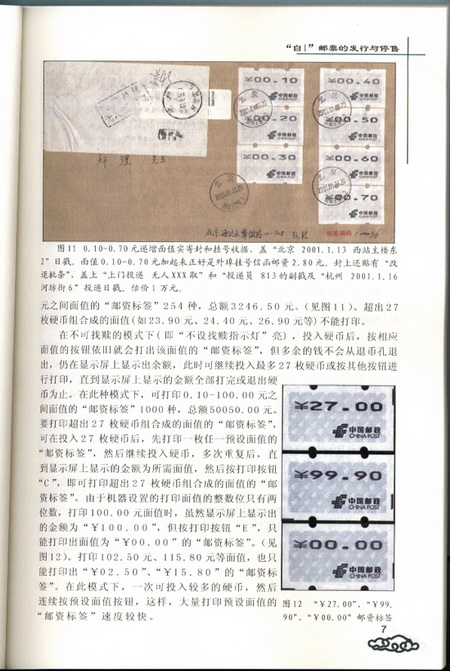 “白|”邮票的发行与停售
¥00.10
¥00.20
¥00.30
¥00.40
¥00.50
¥00.60
¥00.70
图11 0.10-0.70元递增面值实寄封和挂号收据。盖“北京 2001.1.13 西站主楼东
2”日戳。面值0.10-0.70元加起来正好是外埠挂号信函邮资2.80元。封上还贴有“改
退批条”。盖上“上门投递 无人XXX取”和“投递员 813的副戳及“杭州 2001.1.16
河坊街6”投递日戳。估价1万元。
元之间面值的“邮资标签”254种，总额3246.50元。（见图11）。超出27
枚硬币组合成的面值(如23.90元、24.40元、26.90元等)不能打印。
在不可找赎的模式下(即“不设找赎指示灯”亮)，投入硬币后，按相应
面值的按钮依旧就会打出该面值的“邮资标签”，但多余的钱不会从退币孔退
出，仍在显示屏上显示出余额，此时可继续投入最多27枚硬币或按其他按钮进
行打印，直到显示屏上显示的金额全部打完或退出硬
币为止。在此种模式下，可打印0.10-100.00元之
间面值的“邮资标签”1000种，总额50050.00元。
要打印超出27枚硬币组合成的面值的“邮资标签”，
可在投入27枚硬币后，先打印一枚任一预设面值的
“邮资标签”，然后继续投入硬币，多次重复后，直
到显示屏上显示的金额为所需面值，然后按打印按钮
“C”，即可打印超出27枚硬币组合成的面值的“邮
资标签”。由于机器设置的打印面值的整数位只有两
位数，打印100.00元面值时，虽然显示屏上显示出
的金额为“￥100.00”，但按打印按钮“E”，只
能打印出面值为“￥00.00”的“邮资标签”。（见
图12）。打印102.50元、115.80元等面值，也只
能打印出“￥02.50”、“￥15.80”的“邮资标
签”。在此模式下，一次可投入较多的硬币，然后
连续按预设面值按钮，这样，大量打印预设面值的
“邮资标签”速度较快。
¥27.00
中国邮政
CHINA POST
¥99.90
中国邮政
CHINA POST
¥00.00
中国邮政
CHINA POST
图12 “￥27.00”、“￥99.
90”、“￥00.00”邮资标签
7